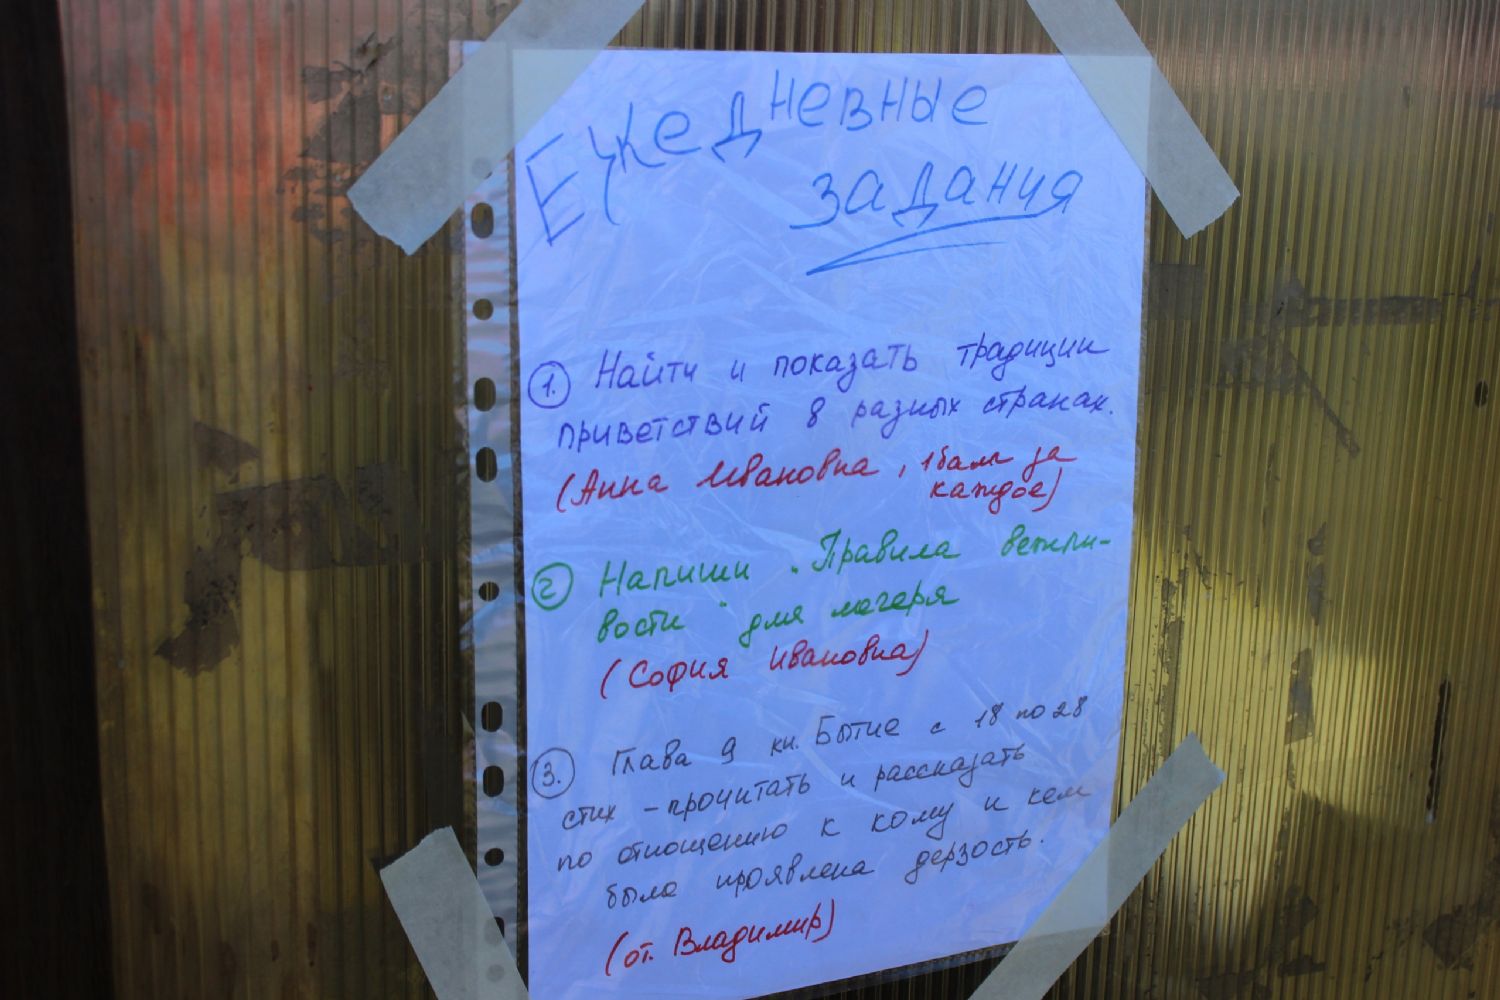 Ежедневные
задания
1. Найти и показать традиции
приветствий в разных странах.
(Анна Ивановна, 1 балл за
каждое)
2 Напиши "Правила вежли-
вости" для лагеря
(София Ивановна)
3. Глава 9 кн. Бытие с 18 по 28
стих - прочитать и рассказать
по отношению к кому и кем
была проявлена дерзость.
(от. Владимир)